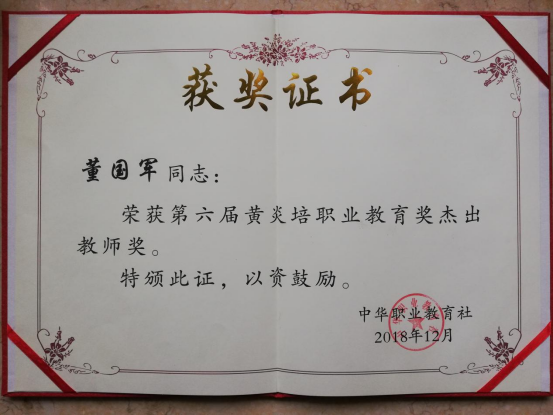 获奖证书
董国军同志：
荣获第六届黄炎培职业教育奖杰出
教师奖。
特颁此证，以资鼓励。
中华职业教育社
2018年12月